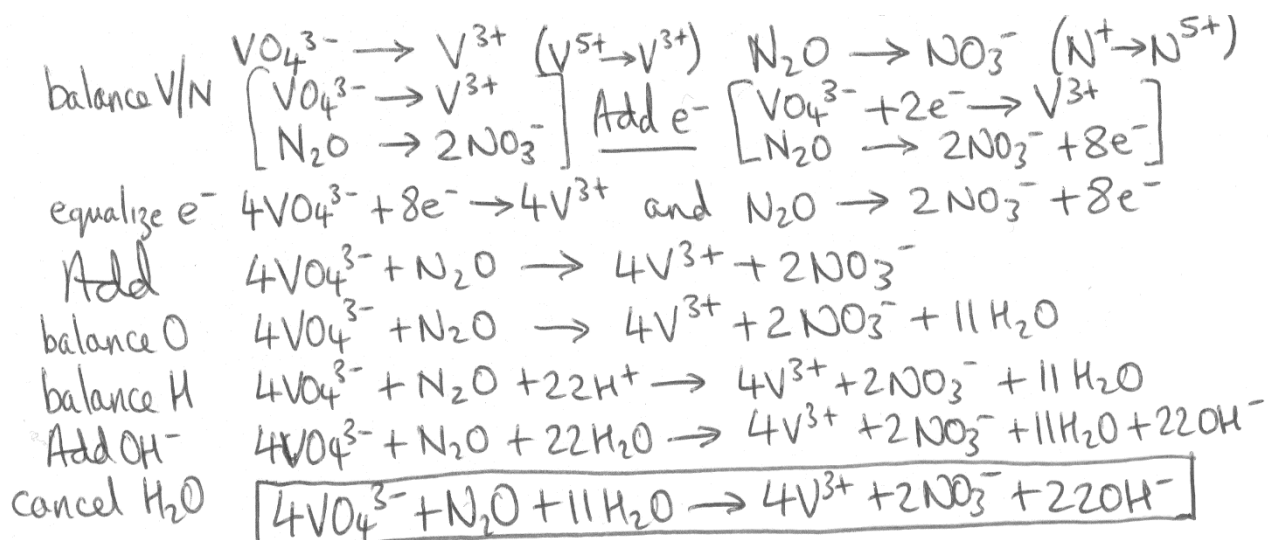 VO₄³⁻ → V³⁺ (V⁵⁺→V³⁺) N₂O → NO₃⁻ (N⁺→N⁵⁺)
balance V/N [VO₄³⁻ → V³⁺ Add e⁻ [VO₄³⁻ + 2e⁻ → V³⁺
N₂O → 2NO₃⁻] N₂O → 2NO₃⁻ + 8e⁻]
equalize e⁻ 4VO₄³⁻ + 8e⁻ → 4V³⁺ and N₂O → 2NO₃⁻ + 8e⁻
Add 4VO₄³⁻ + N₂O → 4V³⁺ + 2NO₃⁻
balance O 4VO₄³⁻ + N₂O → 4V³⁺ + 2NO₃⁻ + 11H₂O
balance H 4VO₄³⁻ + N₂O + 22H⁺ → 4V³⁺ + 2NO₃⁻ + 11H₂O
Add OH⁻ 4VO₄³⁻ + N₂O + 22H₂O → 4V³⁺ + 2NO₃⁻ + 11H₂O + 22OH⁻
cancel H₂O 4VO₄³⁻ + N₂O + 11H₂O → 4V³⁺ + 2NO₃⁻ + 22OH⁻